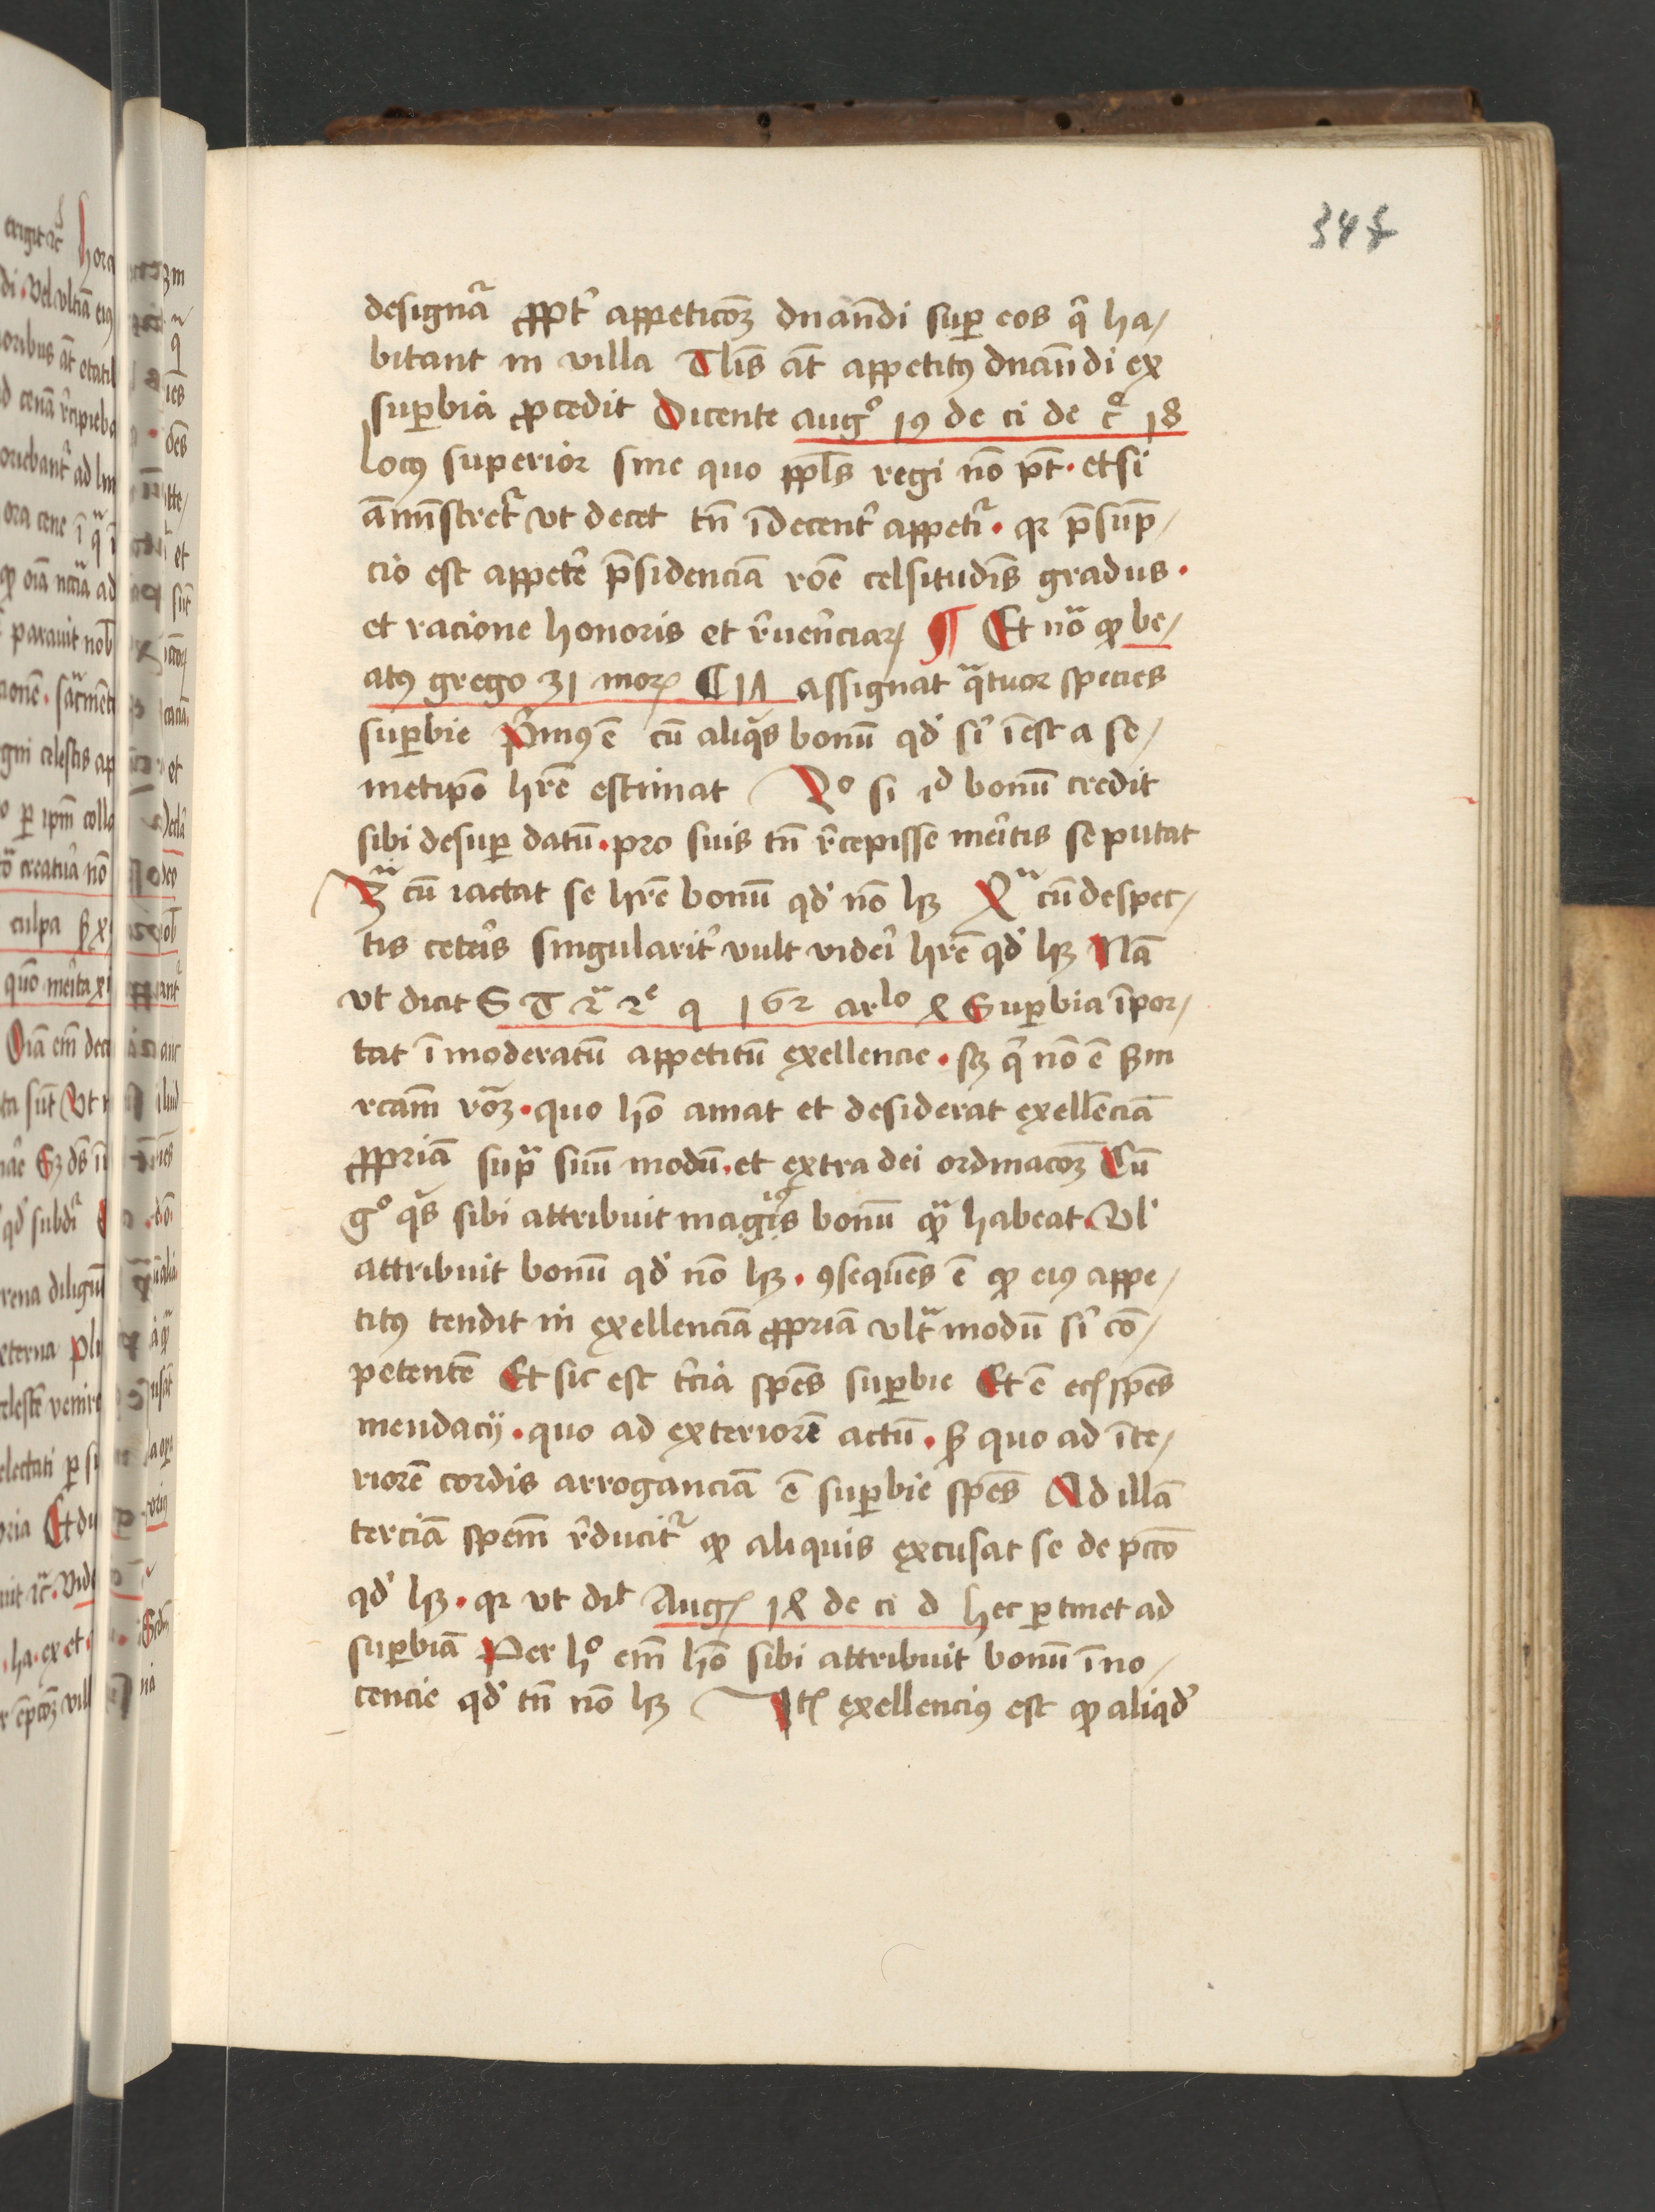 345
designāt̃ ꝓpt̾ appeticōȝ dn̄andi suꝑ eos q̄ ha/
bitant in villa Tlīs at̄ appetitꝯ dnandi ex
suꝑbia ꝓcedit Dicente augꝰ 19 de ci de c̊ 18
locꝯ superior sine quo ppl̄s regi nō pt̄ · etsi
am̄instret̃ vt decet tn̄ īdecent̾ appetit̃ · qꝛ p̄sump̄/
cio est appete᷑ p̄sidenciā rōe celsitudīs gradus ·
et racione honoris et r̄uerēciaꝝ ¶ Et nōᷓ ꝙ be/
atꝯ grego 31 moꝝ C 1Λ assignat qᷓtuor species
suꝑbie Prīmꝯ ē cū aliqͥs bonū qd̾ si̾ īest a se/
metipō hr̄e estimat 2º si id bonū credit
sibi desuꝑ datū · pro suis tn̄ r̄cepisse meritis se putat
3ᷓ cū iactat se hr̄e bonū qd̾ nō hꝫ 4ᷓ cū despec/
tis ceteris singularit̾ vult videri hr̄e qd̾ hꝫ Nā
vt dicit S T 2ᷓ 2ͤ q 162 arͥˡº 4 Suꝑbia īpor/
tat īmoderatū appetitū exellencie · sꝫ q̄ nō ē ẜm
rcām rōᷓꝫ · quo hō amat et desiderat exellēciā
ꝓpriā supᷓ suū modū · et extra dei ordinacōꝫ Cū
gº qͥs sibi attribuit magis bonū qᷓ habeat · Vl̾
attribuit bonū qd̾ nō hꝫ · ꝯsequēs ē ꝙ eiꝯ appe/
titꝯ tendit in exellenciā ꝓpriā vltᷓ modū si̾ cō/
petentē Et sic est t̾cia spēs suꝑbie Et ē ecꝭ spēs
mendacij · quo ad exteriorē actū · ẜ quo ad īte/
riorē cordis arroganciā ē suꝑbie spēs Ad illā
terciā spēm r̄ducit̃ ꝙ aliquis excusat se de pctō
qd̾ hꝫ · qꝛ vt dit̾ Augꝭ 14 de ci d hec ꝑtinet ad
suꝑbiā Per hº em̄ hō sibi attribuit bonū īno/
cencie qd̾ tn̄ nō hꝫ Itꝭ exellenciꝯ est ꝙ aliqd̾